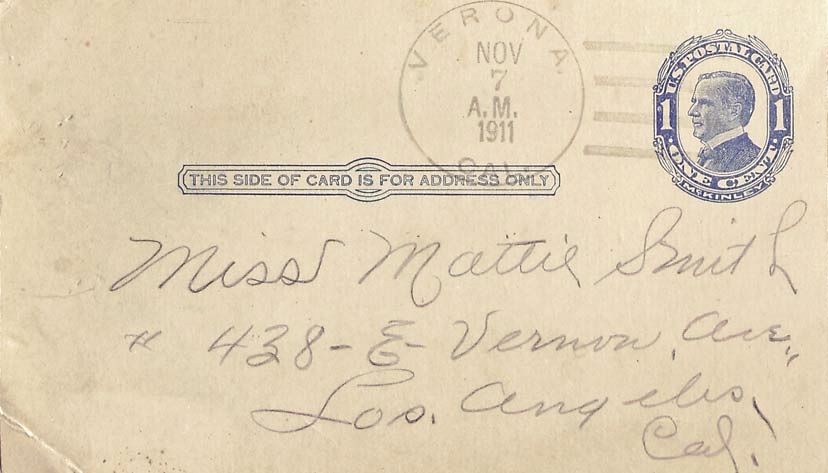 VERONA
NOV
7
A.M.
1911
CAL.
U.S. POSTAL CARD
1 1
ONE CENT
McKINLEY
THIS SIDE OF CARD IS FOR ADDRESS ONLY
Miss Mattie Smith
# 438 - E - Vernon, Ave.,
Los. Angeles,
Cal.